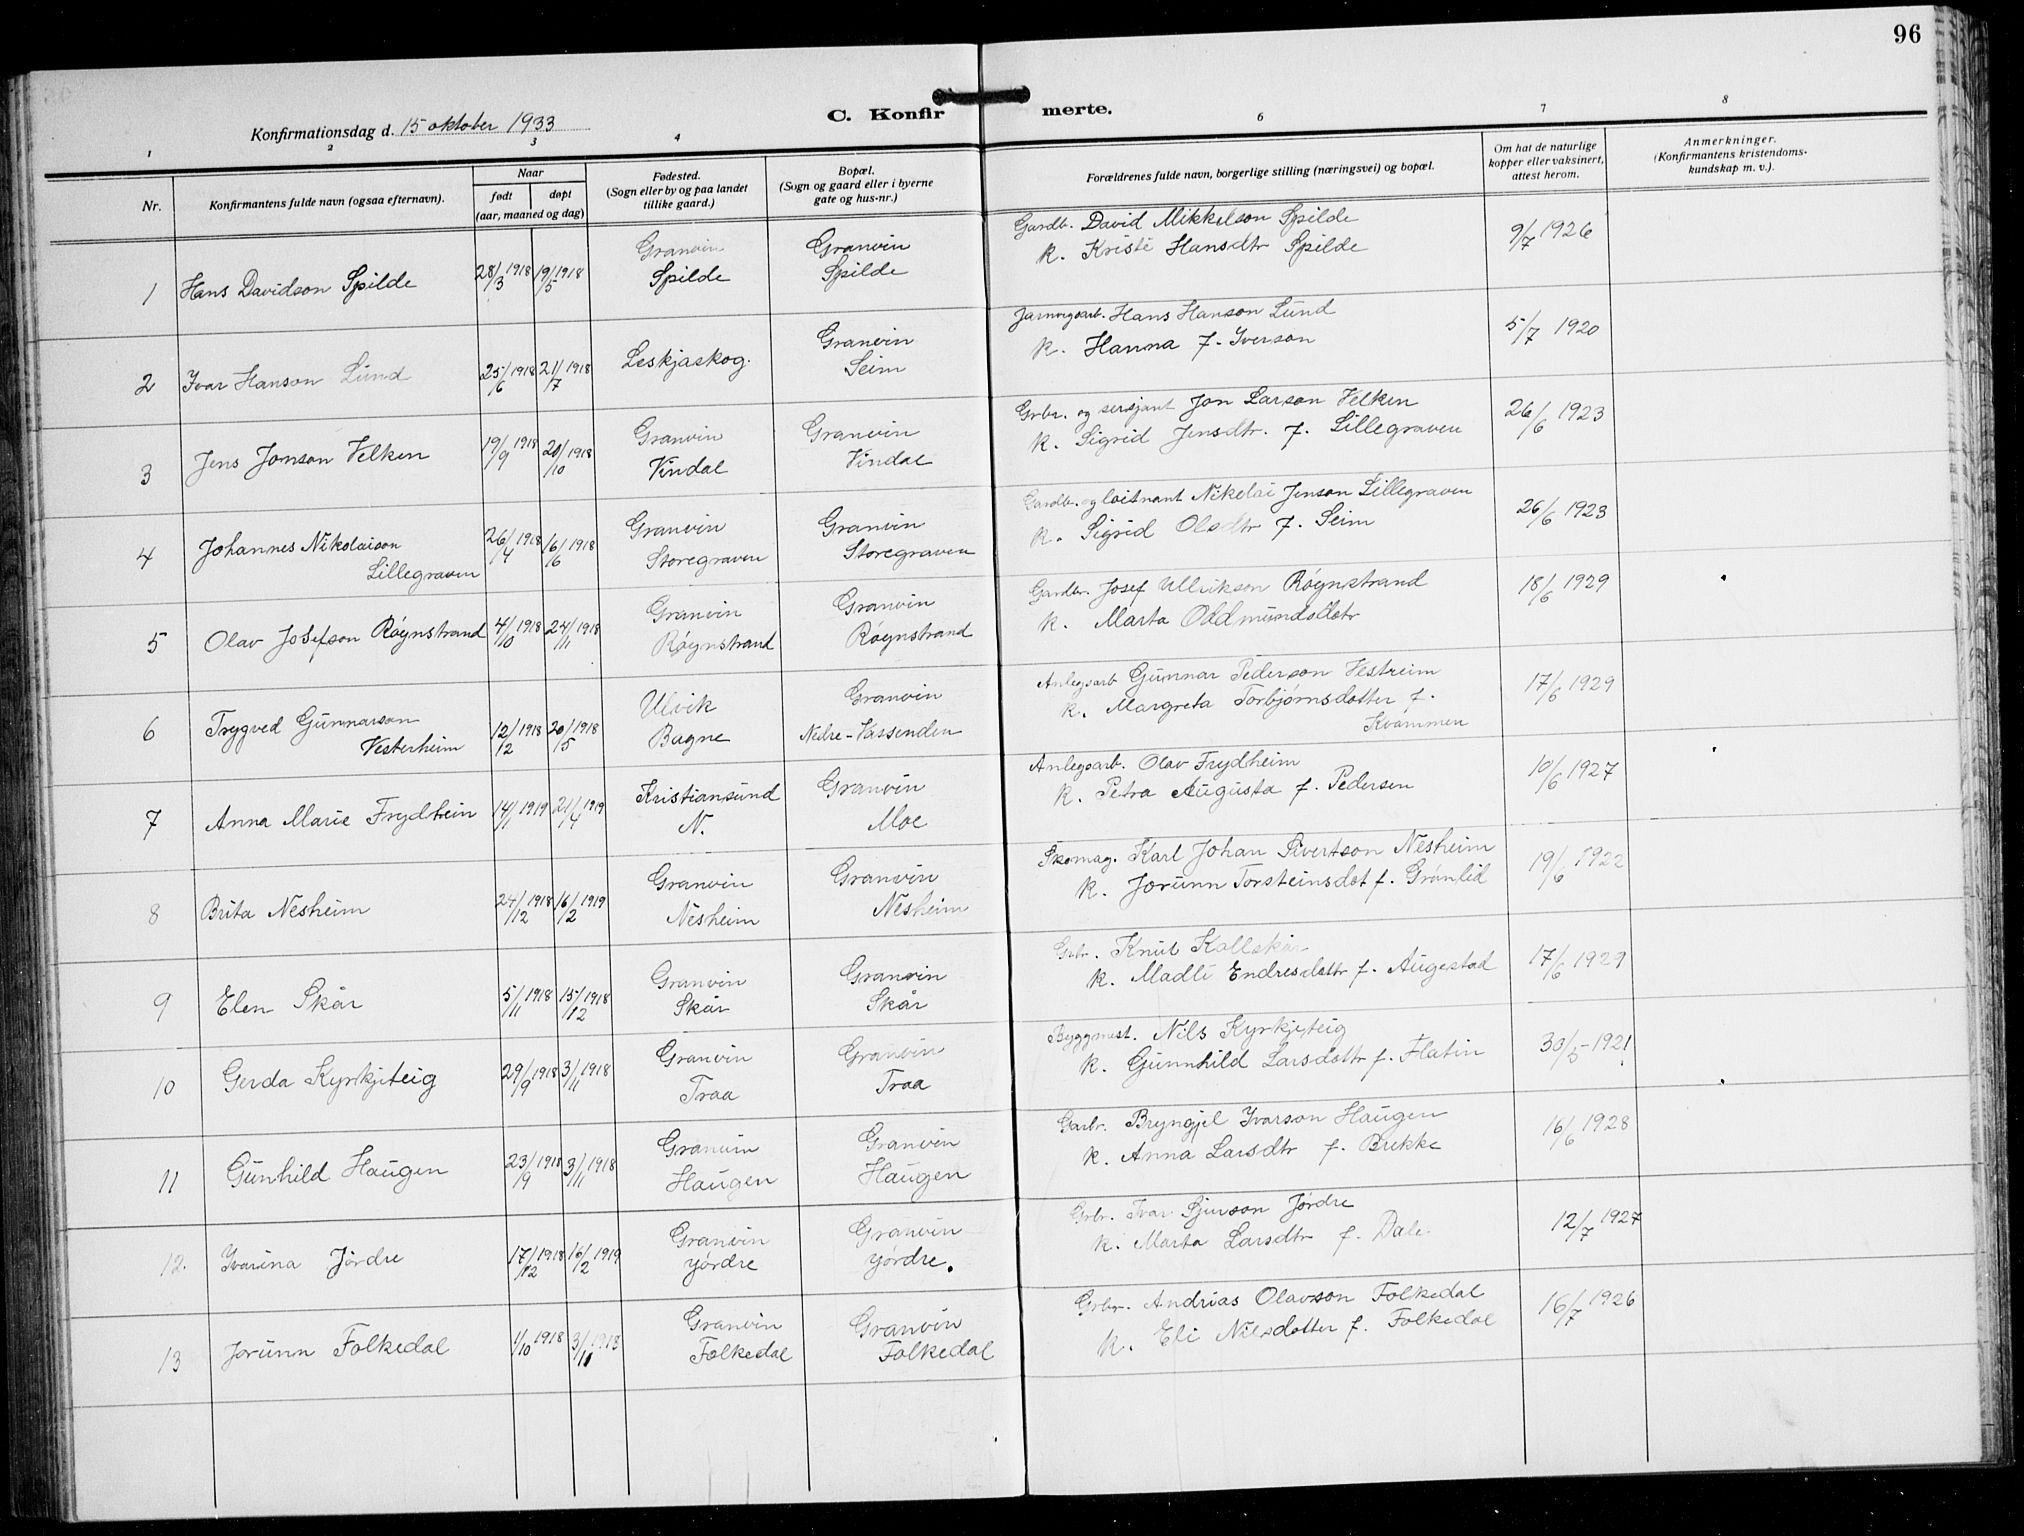 96
C. Konfirmerte.
Konfirmationsdag d. 15 oktober 1933
1 2 3 4 6 7 8
Nr.
Konfirmantens fulde navn (ogsaa efternavn).
Naar
født døpt
(aar, maaned og dag)
Fødested.
(Sogn eller by og paa landet
tillike gaard.)
Bopæl.
(Sogn og gaard eller i byerne
gate og hus-nr.)
Forældrenes fulde navn, borgerlige stilling (næringsvei) og bopæl.
Om hat de naturlige
kopper eller vaksinert,
attest herom.
Anmerkninger.
(Konfirmantens kristendoms-
kundskap m. v.).
1 Hans Davidson Spilde 28/3 1918 19/5 1918
Granvin
Spilde
Granvin
Spilde
Gardbr. David Mikkelson Spilde
k. Kristi Hansdtr Spilde
9/7 1926
2 Ivar Hanson Lund 25/6 1918 21/7 1918
Leskjaskog.
Granvin
Seim
Jarnvgsarb. Hans Hanson Lund
k. Hanna f. Iverson
5/7 1920
3 Jens Jonson Velken 19/9 1918 20/10 1918
Granvin
Vindal
Granvin
Vindal
Grbr. og sersjant Jon Larson Velken
k. Sigrid Jensdtr. f. Lillegraven
26/6 1923
4 Johannes Nikolaison
Lillegraven
26/4 1918 16/6 1918
Granvin
Storegraven
Granvin
Storegraven
Gardbr. og loitnant Nikolai Jenson Lillegraven
k. Sigrid Olsdtr f. Seim
26/6 1923
5 Olav Josefson Røynstrand 4/10 1918 24/11 1918
Granvin
Røynstrand
Granvin
Røynstrand
Gardbr. Josef Ullrikson Røynstrand
k. Marta Oddmundsdotr
18/6 1929
6 Trygved Gunnarson
Vesterheim
12/2 1918 20/5 1918
Ulvik
Bagne
Granvin
Nedre-Vassenden
Anlegsarb Gunnar Pederson Vestreim
k. Margreta Torbjørnsdotter f.
Kvammen
17/6 1929
7 Anna Marie Frydheim 14/1 1919 21/4 1919
Kristiansund
N.
Granvin
Moe
Anlegsarb. Olav Frydheim
k. Petra Augusta f. Pedersen
10/6 1927
8 Brita Nesheim 24/12 1918 16/2 1919
Granvin
Nesheim
Granvin
Nesheim
Skomag. Karl Johan Sivertson Nesheim
k. Jorunn Torsteinsdot f. Grønlid
19/6 1922
9 Elen Skår 5/11 1918 15/12 1918
Granvin
Skår
Granvin
Skår
Grbr. Knut Kollskår
k. Madli Endresdottr f. Augestad
17/6 1929
10 Gerda Kyrkjeteig 29/9 1918 3/11 1918
Granvin
Traa
Granvin
Traa
Byggmest. Nils Kyrkjeteig
k. Gunnhild Larsdottr f. Flatin
30/5-1921
11 Gunhild Haugen 23/9 1918 3/11 1918
Granvin
Haugen
Granvin
Haugen
Garbr. Bryngjel Ivarson Haugen
k. Anna Larsdtr f. Brekke
16/6 1928
12. Ivarina Jørdre 17/12 1918 16/2 1919
Granvin
Yørdre
Granvin
Yørdre.
Grbr. Ivar Sjurson Jørdre
k. Marta Larsdtr f. Dale
12/7 1927
13 Jorunn Folkedal 1/10 1918 3/11 1918
Granvin
Folkedal
Granvin
Folkedal
Grbr. Andrias Olavson Folkedal
k. Eli Nilsdotter f. Folkedal
16/7 1926